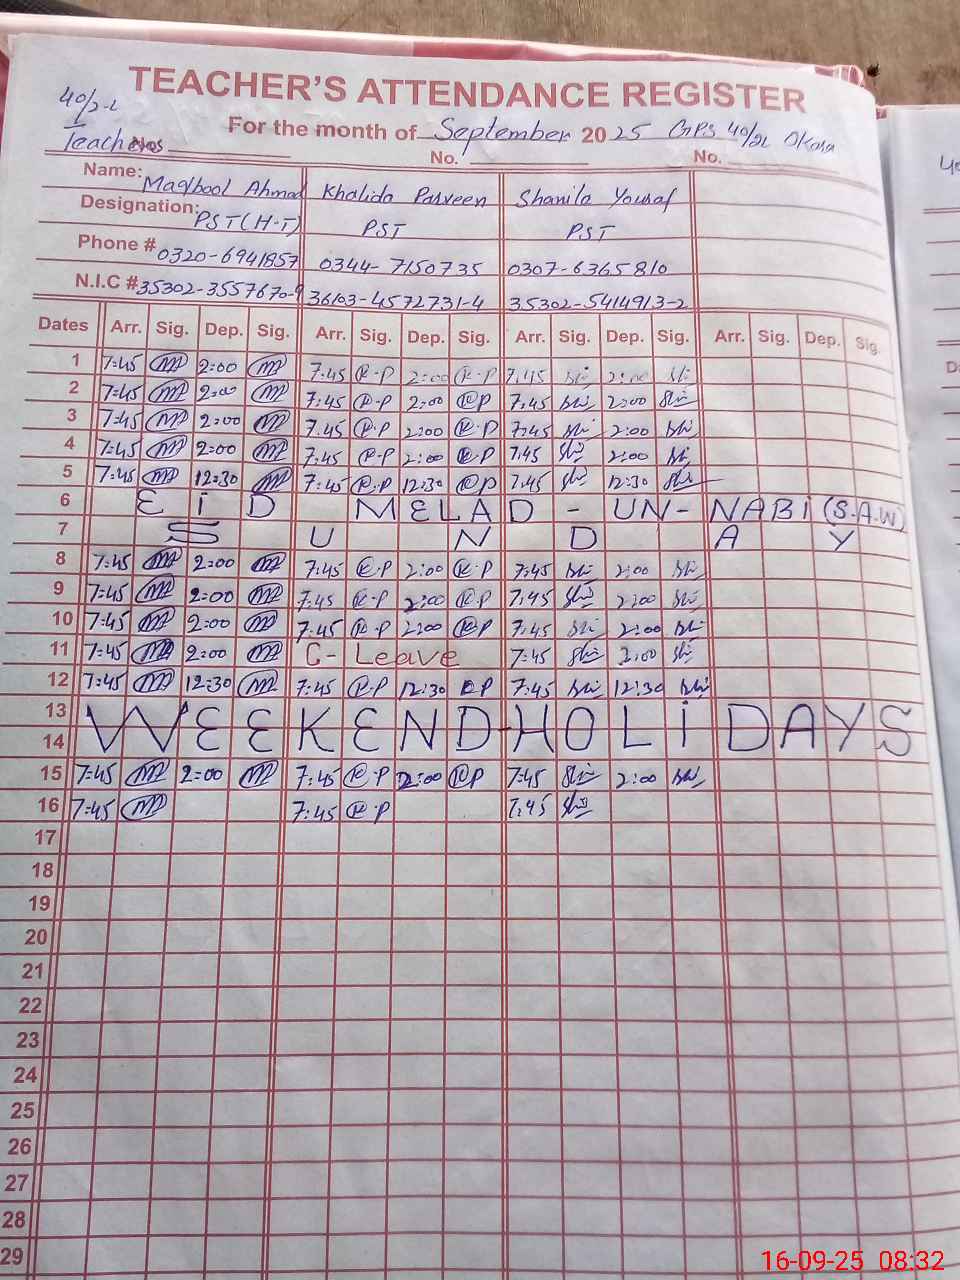 TEACHER'S ATTENDANCE REGISTER
40/2-L
For the month of September 2025 GPS 40/2L Okara
Teachers
No. No.
Name: Maqbool Ahmad Khalida Parveen Shanila Yousaf
Designation: PST(H-T) PST PST
Phone # 0320-6941857 0344-7150735 0307-6365810
N.I.C # 35302-3557670-9 36103-4572731-4 35302-5414913-2
Dates Arr. Sig. Dep. Sig. Arr. Sig. Dep. Sig. Arr. Sig. Dep. Sig. Arr. Sig. Dep. Sig.
1 7:45 2:00 7:45 K.P 2:00 K.P 7:45 2:00
2 7:45 2:00 7:45 K.P 2:00 K.P 7:45 2:00
3 7:45 2:00 7:45 K.P 2:00 K.P 7:45 2:00
4 7:45 2:00 7:45 K.P 2:00 K.P 7:45 2:00
5 7:45 12:30 7:45 K.P 12:30 K.P 7:45 12:30
6 EiD MELAD-UN-NABi (S.A.W)
7 SUNDAY
8 7:45 2:00 7:45 K.P 2:00 K.P 7:45 2:00
9 7:45 2:00 7:45 K.P 2:00 K.P 7:45 2:00
10 7:45 2:00 7:45 K.P 2:00 K.P 7:45 2:00
11 7:45 2:00 C-Leave 7:45 2:00
12 7:45 12:30 7:45 K.P 12:30 K.P 7:45 12:30
13
WEEKEND-HOLiDAYS
14
15 7:45 2:00 7:45 K.P 2:00 K.P 7:45 2:00
16 7:45 7:45 K.P 7:45
17
18
19
20
21
22
23
24
25
26
27
28
29
16-09-25 08:32